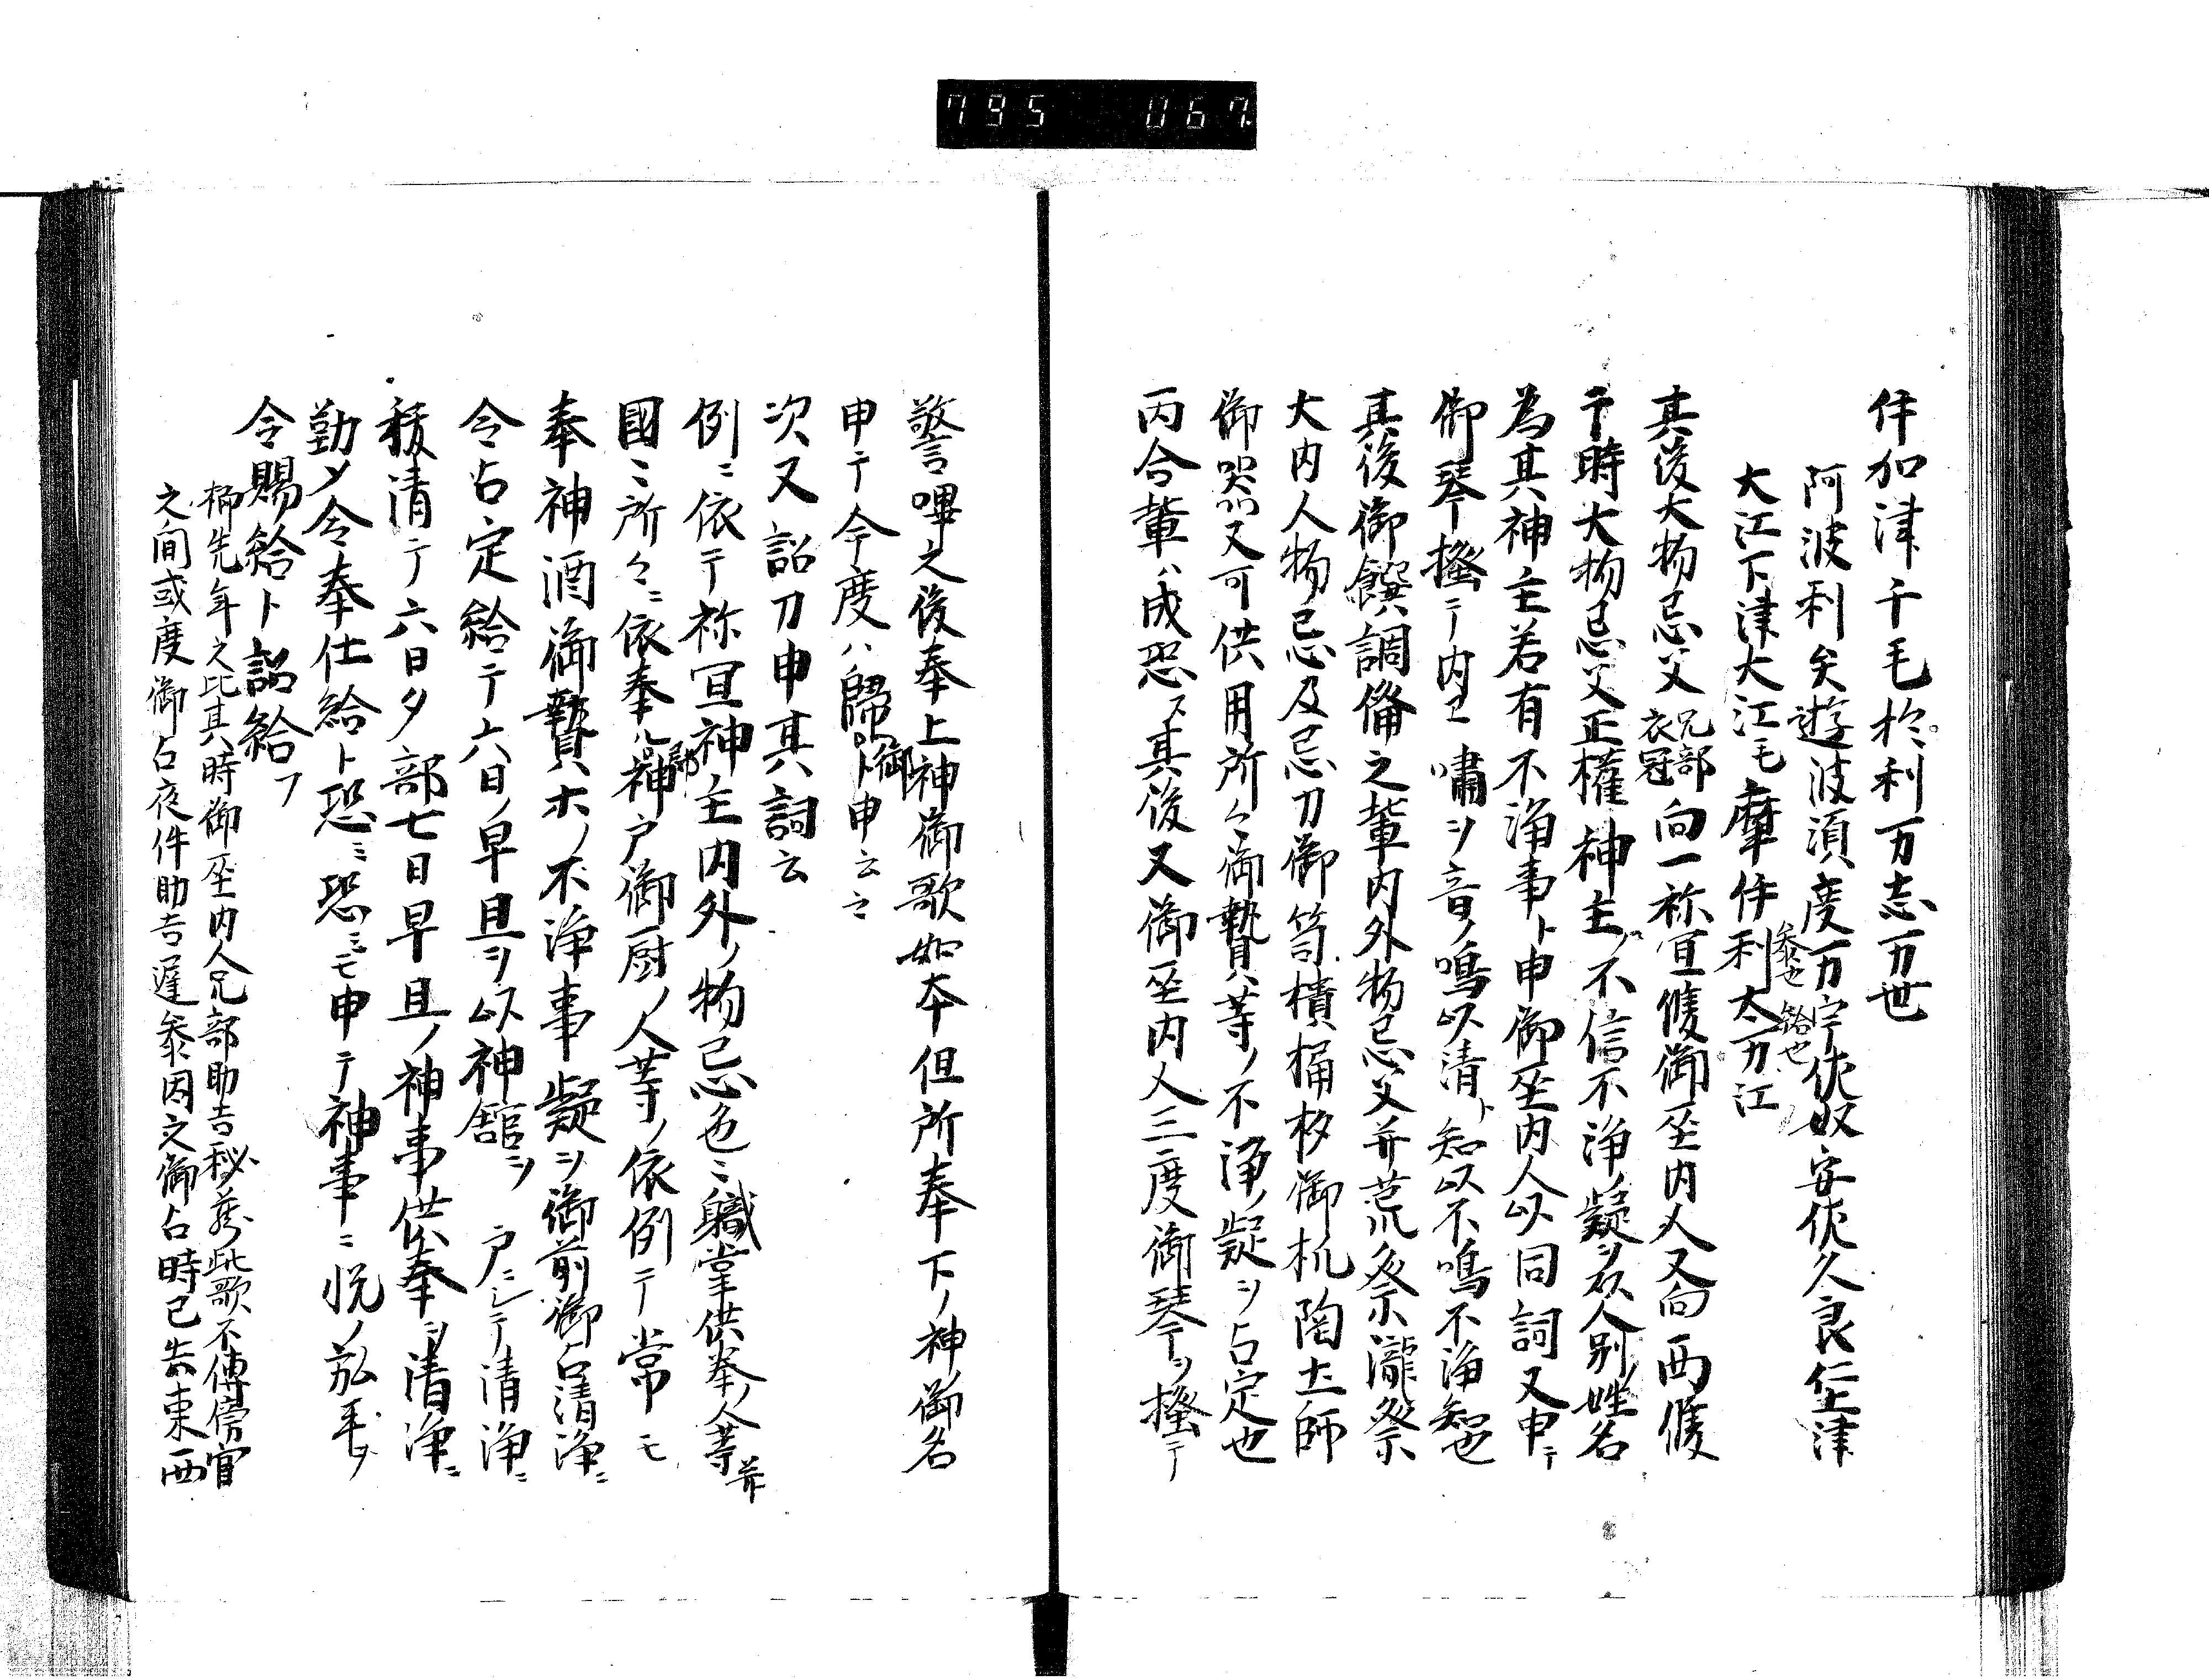 795 067
伴加津千毛於利万志万世
阿波利矢遊波須度万宇佐奴安佐久良仁津
参也 給也
大江下津大江毛摩伴利太万江
其後大物忌父兄部衣冠向一祢宜候御巫内人又向西候
于時大物忌父正権神主ノ不信不浄ノ疑ヲ人別ノ姓名
為其神主若有不浄事ト申御巫内人以同詞又申テ
御琴搔テ内ヱ嘯ヲ音ノ鳴以清ト知以不鳴不浄知也
其後御饌調備之輩内外物忌父并荒祭瀧祭
大内人物忌及忌刀御笥樻桶杉御机陶土師
御器又可供用所々御贄等ノ不浄ノ疑ヲ占定也
丙合輩ハ成恐ス其後又御巫内人三度御琴ヲ搔テ
警嗶之後奉上神御歌如本但所奉下ノ神御名
申テ今度ハ歸御ト申云々
次又詔刀申其詞云
例ニ依テ祢宜神主内外ノ物忌色ニ職掌供奉ノ人等并
國ニ所々ニ依奉ル神郡神戸御厨ノ人等ノ依例テ常モ
奉神酒御贄ホノ不浄事疑ヲ御前御占清浄ニ
令占定給テ六日ノ早旦ヲ以神舘ヲ戸ニシテ清浄ニ
祓清テ六日夕部七日早旦ノ神事供奉ヲ清浄ニ
勤メ令奉仕給ト恐ミ恐ミモ申テ神事ニ悦ノ
令賜給ト詔給フ
抑先年之比其時御巫内人兄部助吉秘蔵此歌不傳傍官
之間或度御占夜件助吉遅参因之御占時已去東西